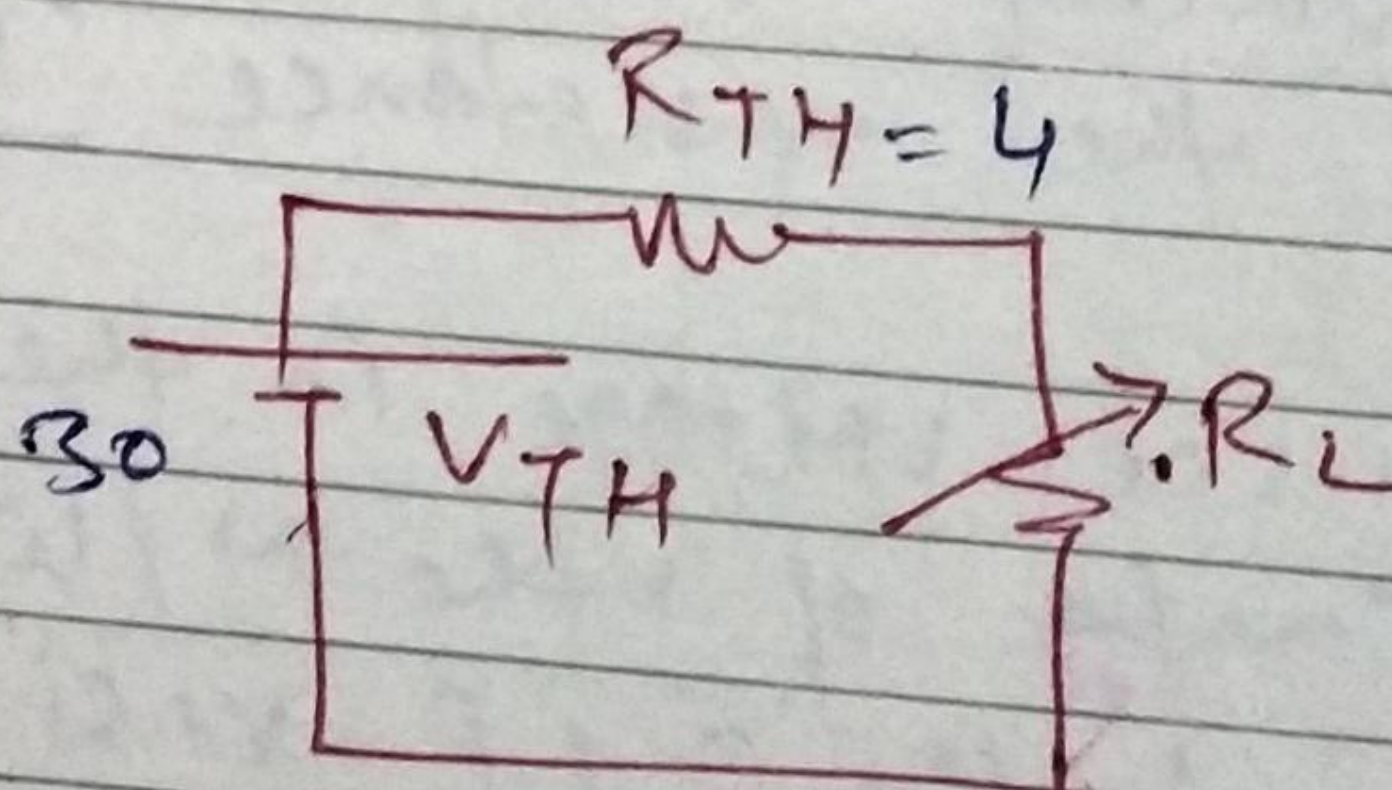 RTH = 4
30
VTH
.RL